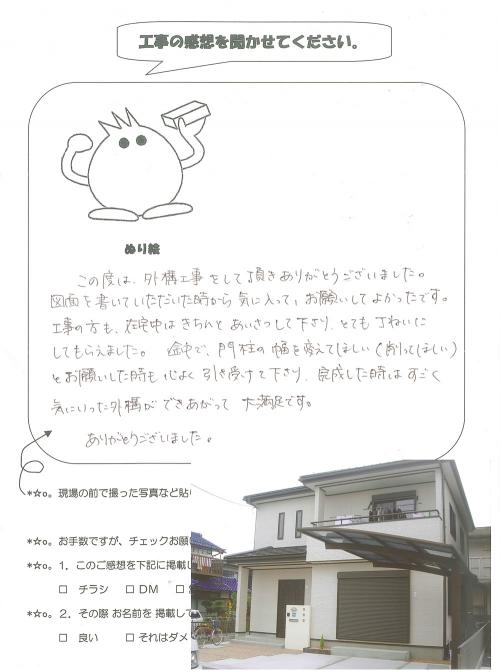 工事の感想を聞かせてください。
ぬり絵
この度は、外構工事をして頂きありがとうございました。
図面を書いていただいた時から気に入って、お願いしてよかったです。
工事の方も、在宅中はきちんとあいさつして下さり、とても丁ねいに
してもらえました。途中で、門柱の幅を変えてほしい(削ってほしい)
とお願いした時も心よく引き受けて下さり、完成した時はすごく
気にいった外構ができあがって大満足です。
ありがとうございました。
*☆o。現場の前で撮った写真など貼
*☆o。お手数ですが、チェックお願
*☆o。1．このご感想を下記に掲載し
□ チラシ □ DM □
*☆o。2．その際 お名前を 掲載して
□ 良い □ それはダメ